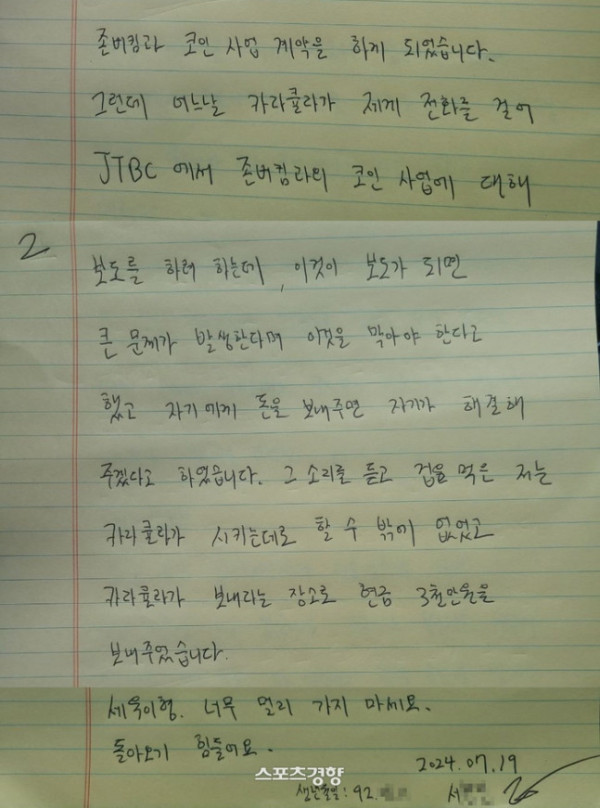 존버킴과 코인 사업 계약을 하게 되었습니다.
그런데 어느날 카라큘라가 제게 전화를 걸어
JTBC 에서 존버킴과의 코인 사업에 대해
2
보도를 하려 하는데, 이것이 보도가 되면
큰 문제가 발생한다며 이것을 막아야 한다고
했고 자기에게 돈을 보내주면 자기가 해결해
주겠다고 하였습니다. 그 소리를 듣고 겁을 먹은 저는
카라큘라가 시키는데로 할 수 밖에 없었고
카라큘라가 보내라는 장소로 현금 3천만원을
보내주었습니다.
세욱이형. 너무 멀리 가지 마세요.
돌아오기 힘들어요.
2024.07.19
스포츠경향
생년월일: 92. 서